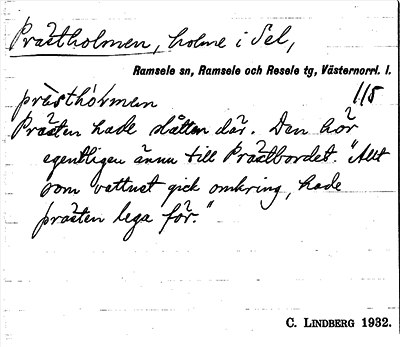 Prästholmen, holme i Sel,
Ramsele sn, Ramsele och Resele tg, Västernorrl. l.
prästhòrmen 1/5
Prästen hade slåtten där. Den hör
egentligen ännu till Prästbordet. "Allt
som vattnet gick omkring, hade
prästen lega för."
C. LINDBERG 1932.